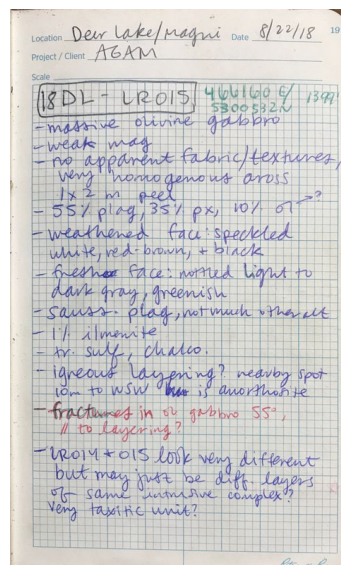 19
Location Deer Lake/Magni Date 8/22/18
Project / Client AGAM
Scale
18DL - LR015 466160 E/ 1399'
5300532N
- massive olivine gabbro
- weak mag
- no apparent fabric/textures,
very homogenous aross
1x2 m peel
- 55% plag, 35% px, 10% ol →?
- weathered face: speckled
white, red-brown, + black
- fresh face: mottled light to
dark gray, greenish
- sauss. plag, not much other alt
- 1% ilmenite
- tr. sulf, chalco.
- igneous layering? nearby spot
10m to WSW is anorthosite
- fractures in ol gabbro 55°,
// to layering?
- LR014 + 015 look very different
but may just be diff. layers
of same intrusive complex?
very taxitic unit?